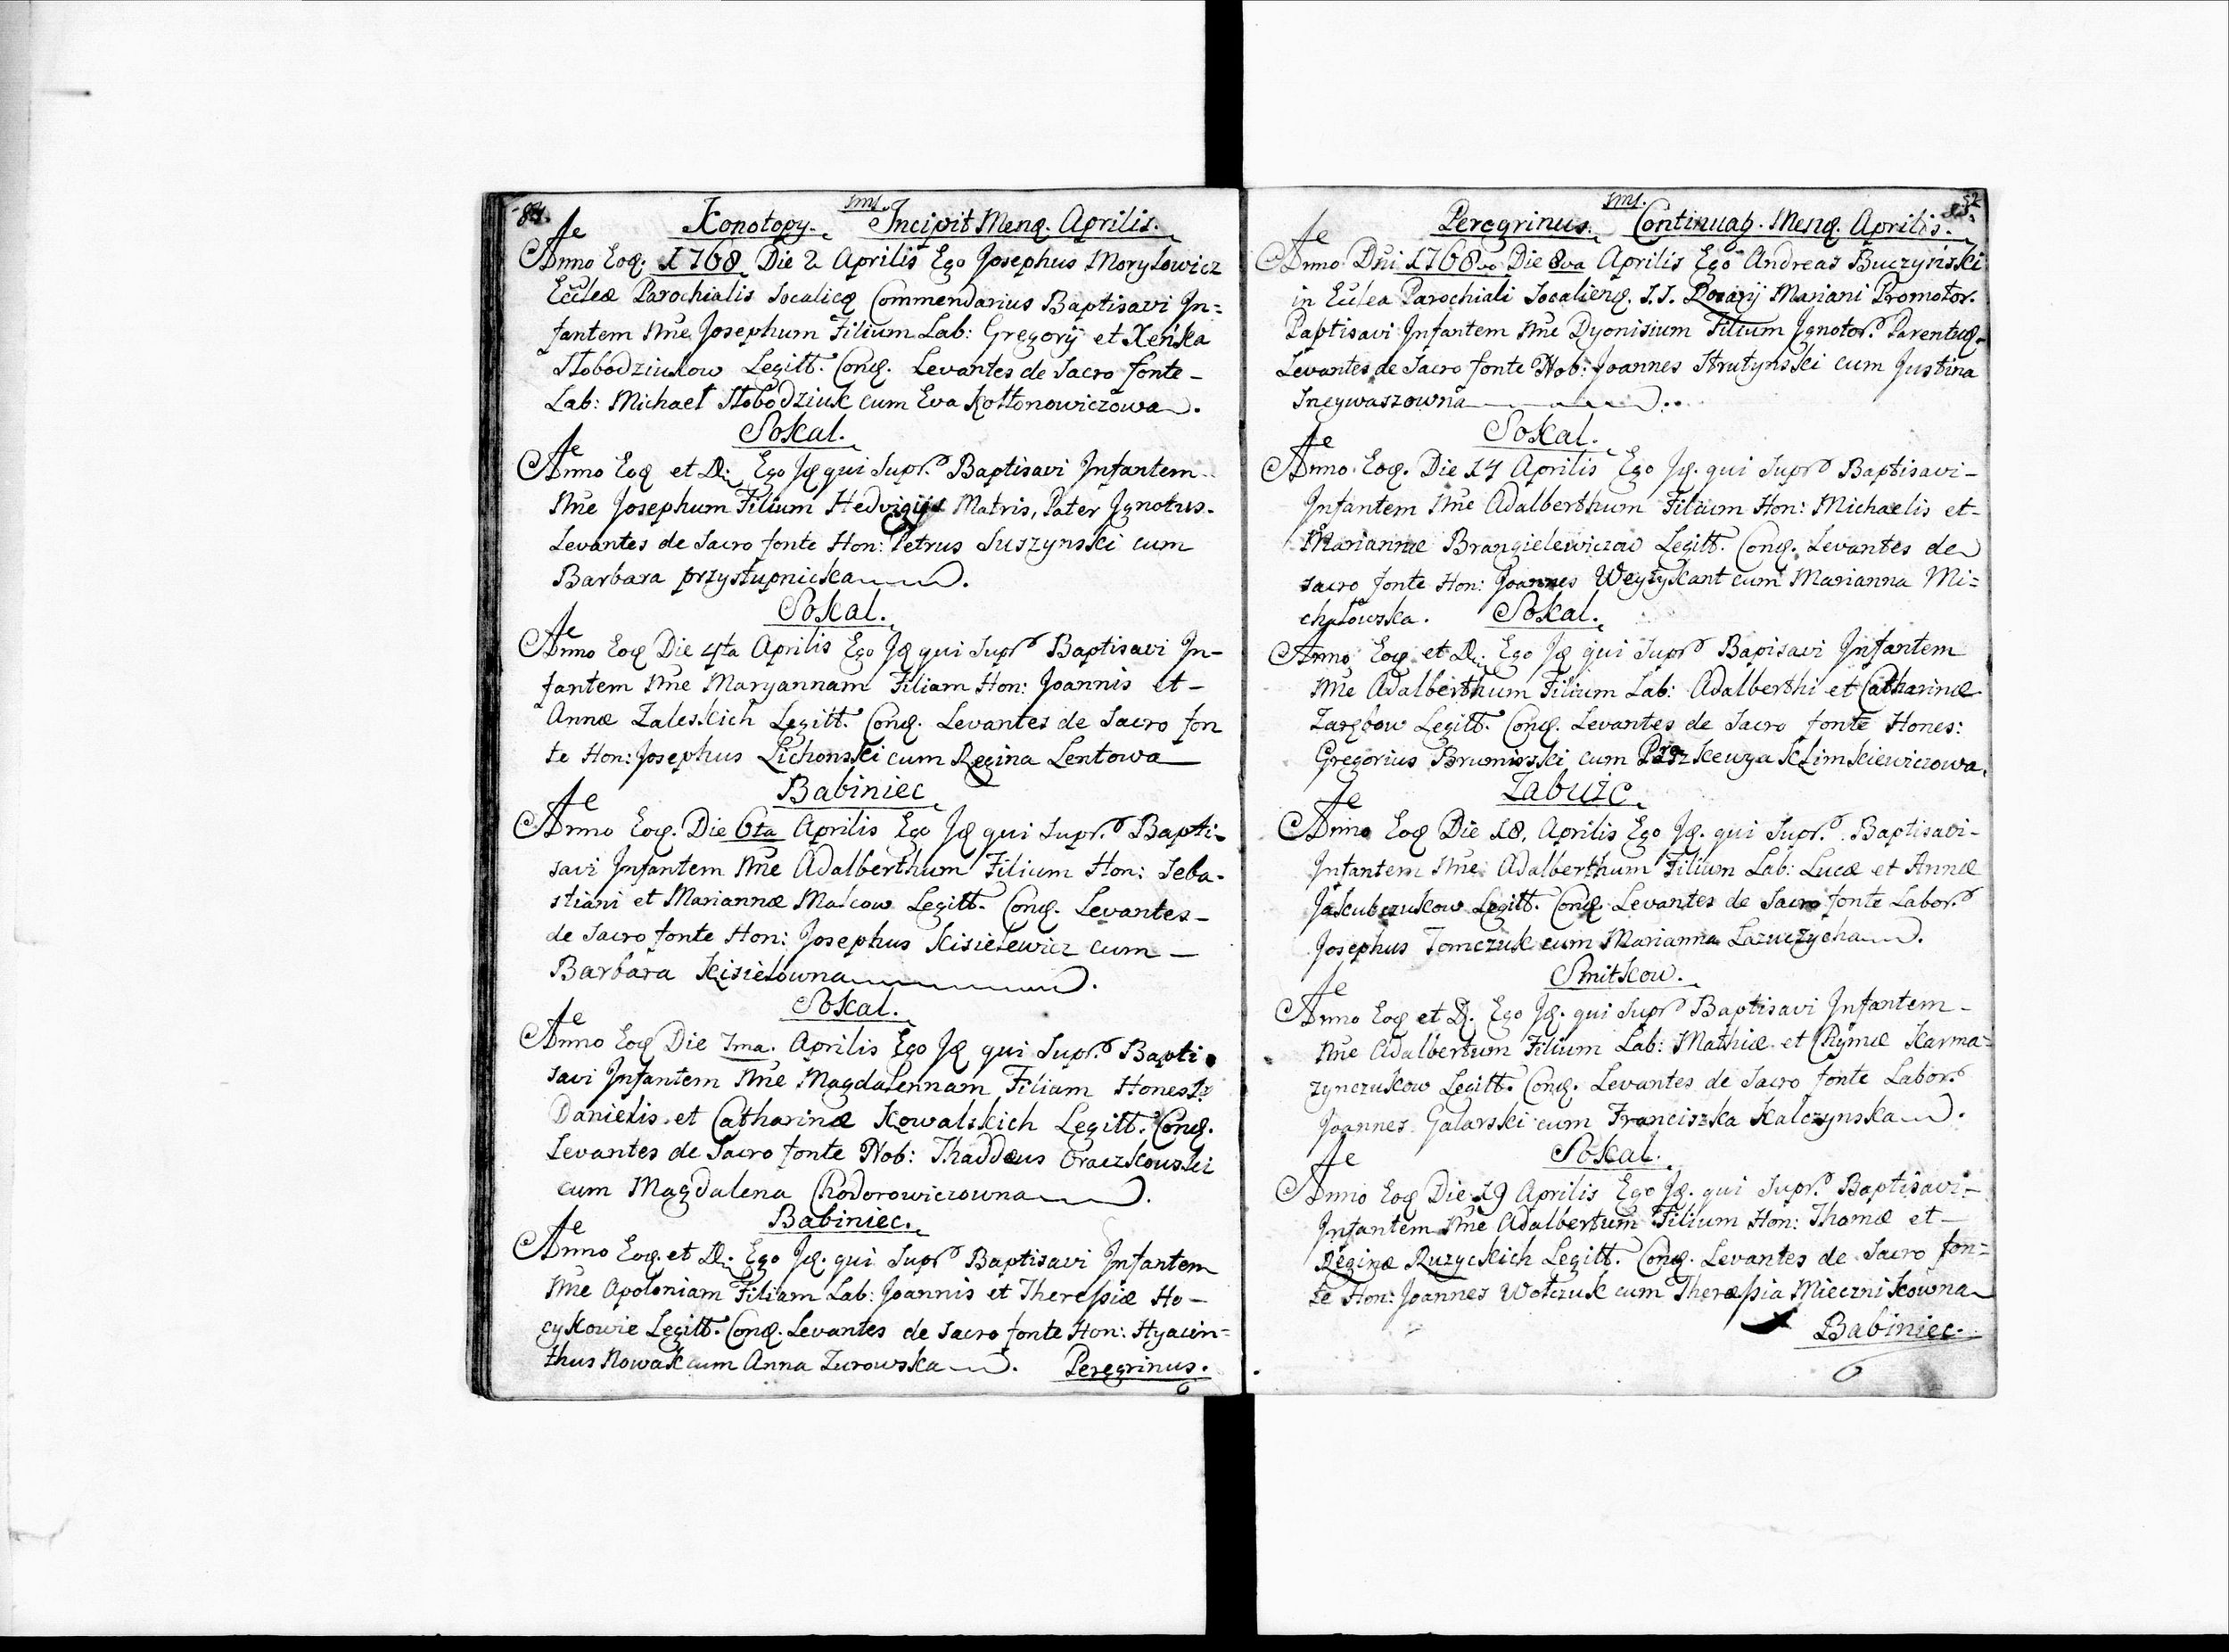 84.
1ms.
Konotopy. Incipit Mensq. Aprilis.
Ae
Anno Eoq. 1768 Die 2 Aprilis Ego Josephus Morylowicz
Eccleæ Parochialis Socalieq Commendarius Baptisavi In=
fantem Nne Josephum Filium Lab: Gregorÿ et Xeńka
Słobodziukow Legitt. Conq. Levantes de Sacro fonte -
Lab: Michael Słobodziuk cum Eva Kołtonowiczowa.
Sokal.
Ae
Anno Eoq et D: Ego Jq qui Supr. Baptisavi Infantem
Nne Josephum Filium Hedvigijs Matris, Pater Ignotus.
Levantes de Sacro fonte Hon: Petrus Suszynski cum
Barbara przystupnicka.
Sokal.
Ae
Anno Eoq Die 4ta Aprilis Ego Jq qui Supr Baptisavi In-
fantem Nne Maryannam Filiam Hon: Joannis et -
Annæ Zaleskich Legitt. Conq. Levantes de Sacro fon
te Hon: Josephus Lichonski cum Regina Lentowa
Babiniec
Ae
Anno Eoq. Die 6ta Aprilis Ego Jq qui Supr. Bapti-
savi Infantem Nne Adalberthum Filium Hon: Seba-
stiani et Mariannæ Malcow Legitt. Conq. Levantes -
de Sacro fonte Hon: Josephus Kisielewicz cum -
Barbara Kisielowna.
Sokal.
Ae
Anno Eoq Die 7ma. Aprilis Ego Jq qui Supr. Bapti
savi Infantem Nne Magdalennam Filiam Honest:
Danielis et Catharinæ Kowalskich Legitt. Conq.
Levantes de Sacro fonte Nob: Thaddeus Oraczkowski
cum Magdalena Chodorowiczowna.
Babiniec.
Ae
Anno Eoq. et D: Ego Jq. qui Supr Baptisavi Infantem
Nne Apoloniam Filiam Lab: Joannis et Theressiæ Ho-
cykowie Legitt. Conq. Levantes de Sacro fonte Hon: Hyacin=
thus Nowak cum Anna Zurowska. Peregrinus.
1ms.
Peregrinus. Continuaq. Mensq. Aprilis.
Ae
Anno Dni 1768vo Die 8va Aprilis Ego Andreas Buczynski
in Eclea Parochiali Socalienq. S.S. Rosarÿ Mariani Promotor.
Baptisavi Infantem Nne Dyonisium Filium Ignotor. Parentuq.
Levantes de Sacro fonte Nob: Joannes Strutynski cum Justina
Sneywaszowna.
Sokal.
Ae
Anno. Eoq. Die 14 Aprilis Ego Jq. qui Supr Baptisavi -
Infantem Nne Adalberthum Filium Hon: Michaelis et -
Mariannæ Brangielewiczow Legitt. Conq. Levantes de
sacro fonte Hon: Joannes Weyzykant cum Marianna Mi=
chałowska. Sokal.
Anno Eoq et D: Ego Jq qui Supr Bapisavi Infantem
Nne Adalberthum Filium Lab: Adalberthi et Catharinæ
Zarębow Legitt. Conq. Levantes de Sacro fonte Hones:
Gregorius Bruminski cum Praszkewya Klimkiewiczowa.
Zabuże.
Ae
Anno Eoq Die 18. Aprilis Ego Jq. qui Supr. Baptisavi -
Infantem Nne Adalberthum Filium Lab: Lucæ et Annæ
Jakubczukow Legitt. Conq. Levantes de Sacro fonte Labor.
Josephus Tomczuk cum Marianna Lazuczycha.
Smitkow.
Ae
Anno Eoq et D. Ego Jq. qui Supr Baptisavi Infantem -
Nne Adalbertum Filium Lab: Mathiæ et Chymæ Karma=
zynczukow Legitt. Conq. Levantes de Sacro fonte Labor.
Joannes Galarski cum Franciszka Kalczynska.
Sokal.
Ae
Anno Eoq Die 19 Aprilis Ego Jq. qui Supr. Baptisavi -
Infantem Nne Adalbertum Filium Hon: Thomæ et -
Reginæ Ruzyckich Legitt. Conq. Levantes de Sacro fon=
te Hon: Joannes Wołczuk cum Theræssia Miecznikowna
Babiniec.